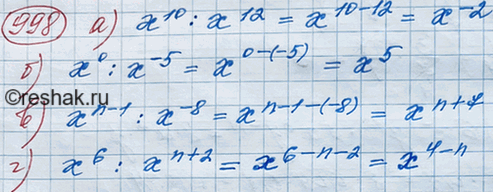 998 а) x¹⁰ : x¹² = x¹⁰⁻¹² = x⁻²
б) x⁰ : x⁻⁵ = x⁰⁻⁽⁻⁵⁾ = x⁵
©reshak.ru
в) xⁿ⁻¹ : x⁻⁸ = xⁿ⁻¹⁻⁽⁻⁸⁾ = xⁿ⁺⁷
г) x⁶ : xⁿ⁺² = x⁶⁻ⁿ⁻² = x⁴⁻ⁿ